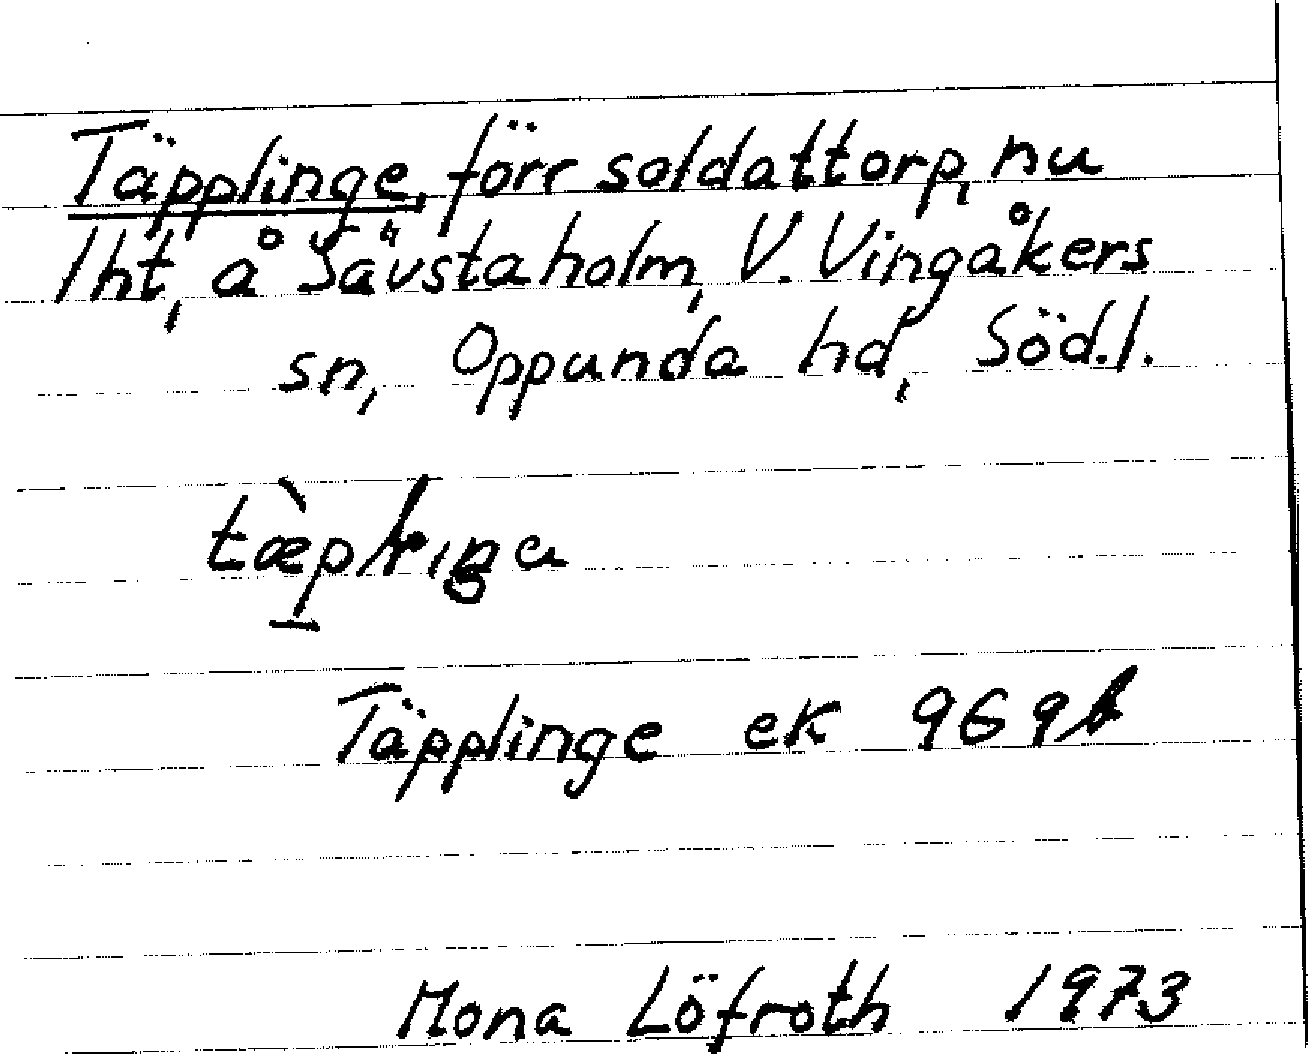 Täpplinge, förr soldattorp, nu
lht, å Sävstaholm, V. Vingåkers
sn, Oppunda hd, Söd.l.
Täpplinge ek 969b
Mona Löfroth 1973